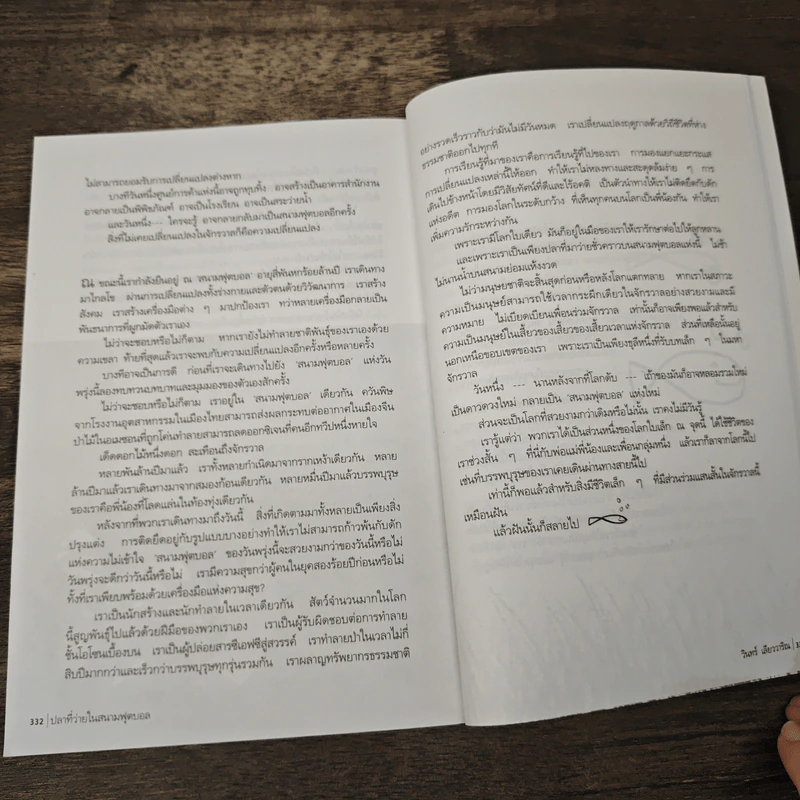 ไม่สามารถยอมรับการเปลี่ยนแปลงต่างหาก
บางทีวันหนึ่งศูนย์การค้าแห่งนี้อาจถูกทุบทิ้ง อาจสร้างเป็นอาคารสำนักงาน
อาจกลายเป็นพิพิธภัณฑ์ อาจเป็นโรงเรียน อาจเป็นสระว่ายน้ำ
และวันหนึ่ง--- ใครจะรู้ อาจกลายกลับมาเป็นสนามฟุตบอลอีกครั้ง
สิ่งที่ไม่เคยเปลี่ยนแปลงในจักรวาลก็คือความเปลี่ยนแปลง
ณ ขณะนี้เรากำลังยืนอยู่ ณ 'สนามฟุตบอล' อายุสี่พันหกร้อยล้านปี เราเดินทาง
มาไกลโข ผ่านการเปลี่ยนแปลงทั้งร่างกายและตัวตนด้วยวิวัฒนาการ เราสร้าง
สังคม เราสร้างเครื่องมือต่าง ๆ มาปกป้องเรา ทว่าหลายเครื่องมือกลายเป็น
พันธนาการที่ผูกมัดตัวเราเอง
ไม่ว่าจะชอบหรือไม่ก็ตาม หากเรายังไม่ทำลายชาติพันธุ์ของเราเองด้วย
ความเขลา ท้ายที่สุดแล้วเราจะพบกับความเปลี่ยนแปลงอีกครั้งหรือหลายครั้ง
บางทีอาจเป็นการดี ก่อนที่เราจะเดินทางไปยัง 'สนามฟุตบอล' แห่งวัน
พรุ่งนี้ลองทบทวนบทบาทและมุมมองของตัวเองสักครั้ง
ไม่ว่าจะชอบหรือไม่ก็ตาม เราอยู่ใน 'สนามฟุตบอล' เดียวกัน ควันพิษ
จากโรงงานอุตสาหกรรมในเมืองไทยสามารถส่งผลกระทบต่ออากาศในเมืองจีน
ป่าไม้ในอเมซอนที่ถูกโค่นทำลายสามารถลดออกซิเจนที่คนอีกทวีปหนึ่งหายใจ
เด็ดดอกไม้หนึ่งดอก สะเทือนถึงจักรวาล
หลายพันล้านปีมาแล้ว เราทั้งหลายกำเนิดมาจากรากเหง้าเดียวกัน หลาย
ล้านปีมาแล้วเราเดินทางมาจากสมองก้อนเดียวกัน หลายหมื่นปีมาแล้วบรรพบุรุษ
ของเราคือพี่น้องที่โลดแล่นในท้องทุ่งเดียวกัน
หลังจากที่พวกเราเดินทางมาถึงวันนี้ สิ่งที่เกิดตามมาทั้งหลายเป็นเพียงสิ่ง
ปรุงแต่ง การติดยึดอยู่กับรูปแบบบางอย่างทำให้เราไม่สามารถก้าวพ้นกับดัก
แห่งความไม่เข้าใจ 'สนามฟุตบอล' ของวันพรุ่งนี้จะสวยงามกว่าของวันนี้หรือไม่
วันพรุ่งจะดีกว่าวันนี้หรือไม่ เรามีความสุขกว่าผู้คนในยุคสองร้อยปีก่อนหรือไม่
ทั้งที่เราเพียบพร้อมด้วยเครื่องมือแห่งความสุข?
เราเป็นนักสร้างและนักทำลายในเวลาเดียวกัน สัตว์จำนวนมากในโลก
นี้สูญพันธุ์ไปแล้วด้วยฝีมือของพวกเราเอง เราเป็นผู้รับผิดชอบต่อการทำลาย
ชั้นโอโซนเบื้องบน เราเป็นผู้ปล่อยสารซีเอฟซีสู่สวรรค์ เราทำลายป่าในเวลาไม่กี่
สิบปีมากกว่าและเร็วกว่าบรรพบุรุษทุกรุ่นรวมกัน เราผลาญทรัพยากรธรรมชาติ
332 | ปลาที่ว่ายในสนามฟุตบอล
อย่างรวดเร็วราวกับว่ามันไม่มีวันหมด เราเปลี่ยนแปลงฤดูกาลด้วยวิถีชีวิตที่ห่าง
ธรรมชาติออกไปทุกที
การเรียนรู้ที่มาของเราคือการเรียนรู้ที่ไปของเรา การมองแยกแยะกระแส
การเปลี่ยนแปลงเหล่านี้ให้ออก ทำให้เราไม่หลงทางและสะดุดล้มง่าย ๆ การ
เดินไปข้างหน้าโดยมีวิสัยทัศน์ที่ดีและไร้อคติ เป็นตัวนำทางให้เราไม่ติดยึดกับดัก
แห่งอดีต การมองโลกในระดับกว้าง ที่เห็นทุกคนบนโลกเป็นพี่น้องกัน ทำให้เรา
เพิ่มความรักระหว่างกัน
เพราะเรามีโลกใบเดียว มันก็อยู่ในมือของเราให้เรารักษาต่อไปให้ลูกหลาน
และเพราะเราเป็นเพียงปลาที่มาว่ายชั่วคราวบนสนามฟุตบอลแห่งนี้ ไม่ช้า
ไม่นานน้ำบนสนามย่อมแห้งงวด
ไม่ว่ามนุษยชาติจะสิ้นสุดก่อนหรือหลังโลกแตกทลาย หากเราในสภาวะ
ความเป็นมนุษย์สามารถใช้เวลากระผีกเดียวในจักรวาลอย่างสวยงามและมี
ความหมาย ไม่เบียดเบียนเพื่อนร่วมจักรวาล เท่านั้นก็อาจเพียงพอแล้วสำหรับ
ความเป็นมนุษย์ในเสี้ยวของเสี้ยวของเสี้ยวเวลาแห่งจักรวาล ส่วนที่เหลือนั้นอยู่
นอกเหนือขอบเขตของเรา เพราะเราเป็นเพียงธุลีหนึ่งที่รับบทเล็ก ๆ ในมหา
จักรวาล
วันหนึ่ง --- นานหลังจากที่โลกดับ --- เถ้าของมันก็อาจหลอมรวมใหม่
เป็นดาวดวงใหม่ กลายเป็น 'สนามฟุตบอล' แห่งใหม่
ส่วนจะเป็นโลกที่สวยงามกว่าเดิมหรือไม่นั้น เราคงไม่มีวันรู้
เรารู้แต่ว่า พวกเราได้เป็นส่วนหนึ่งของโลกใบเล็ก ณ จุดนี้ ได้ใช้ชีวิตของ
เราช่วงสั้น ๆ ที่นี่กับพ่อแม่พี่น้องและเพื่อนกลุ่มหนึ่ง แล้วเราก็ลาจากโลกนี้ไป
เช่นที่บรรพบุรุษของเราเคยเดินผ่านทางสายนี้ไป
เท่านี้ก็พอแล้วสำหรับสิ่งมีชีวิตเล็ก ๆ ที่มีส่วนร่วมแสนสั้นในจักรวาลนี้
เหมือนฝัน
แล้วฝันนั้นก็สลายไป
วินทร์ เลียววาริณ |